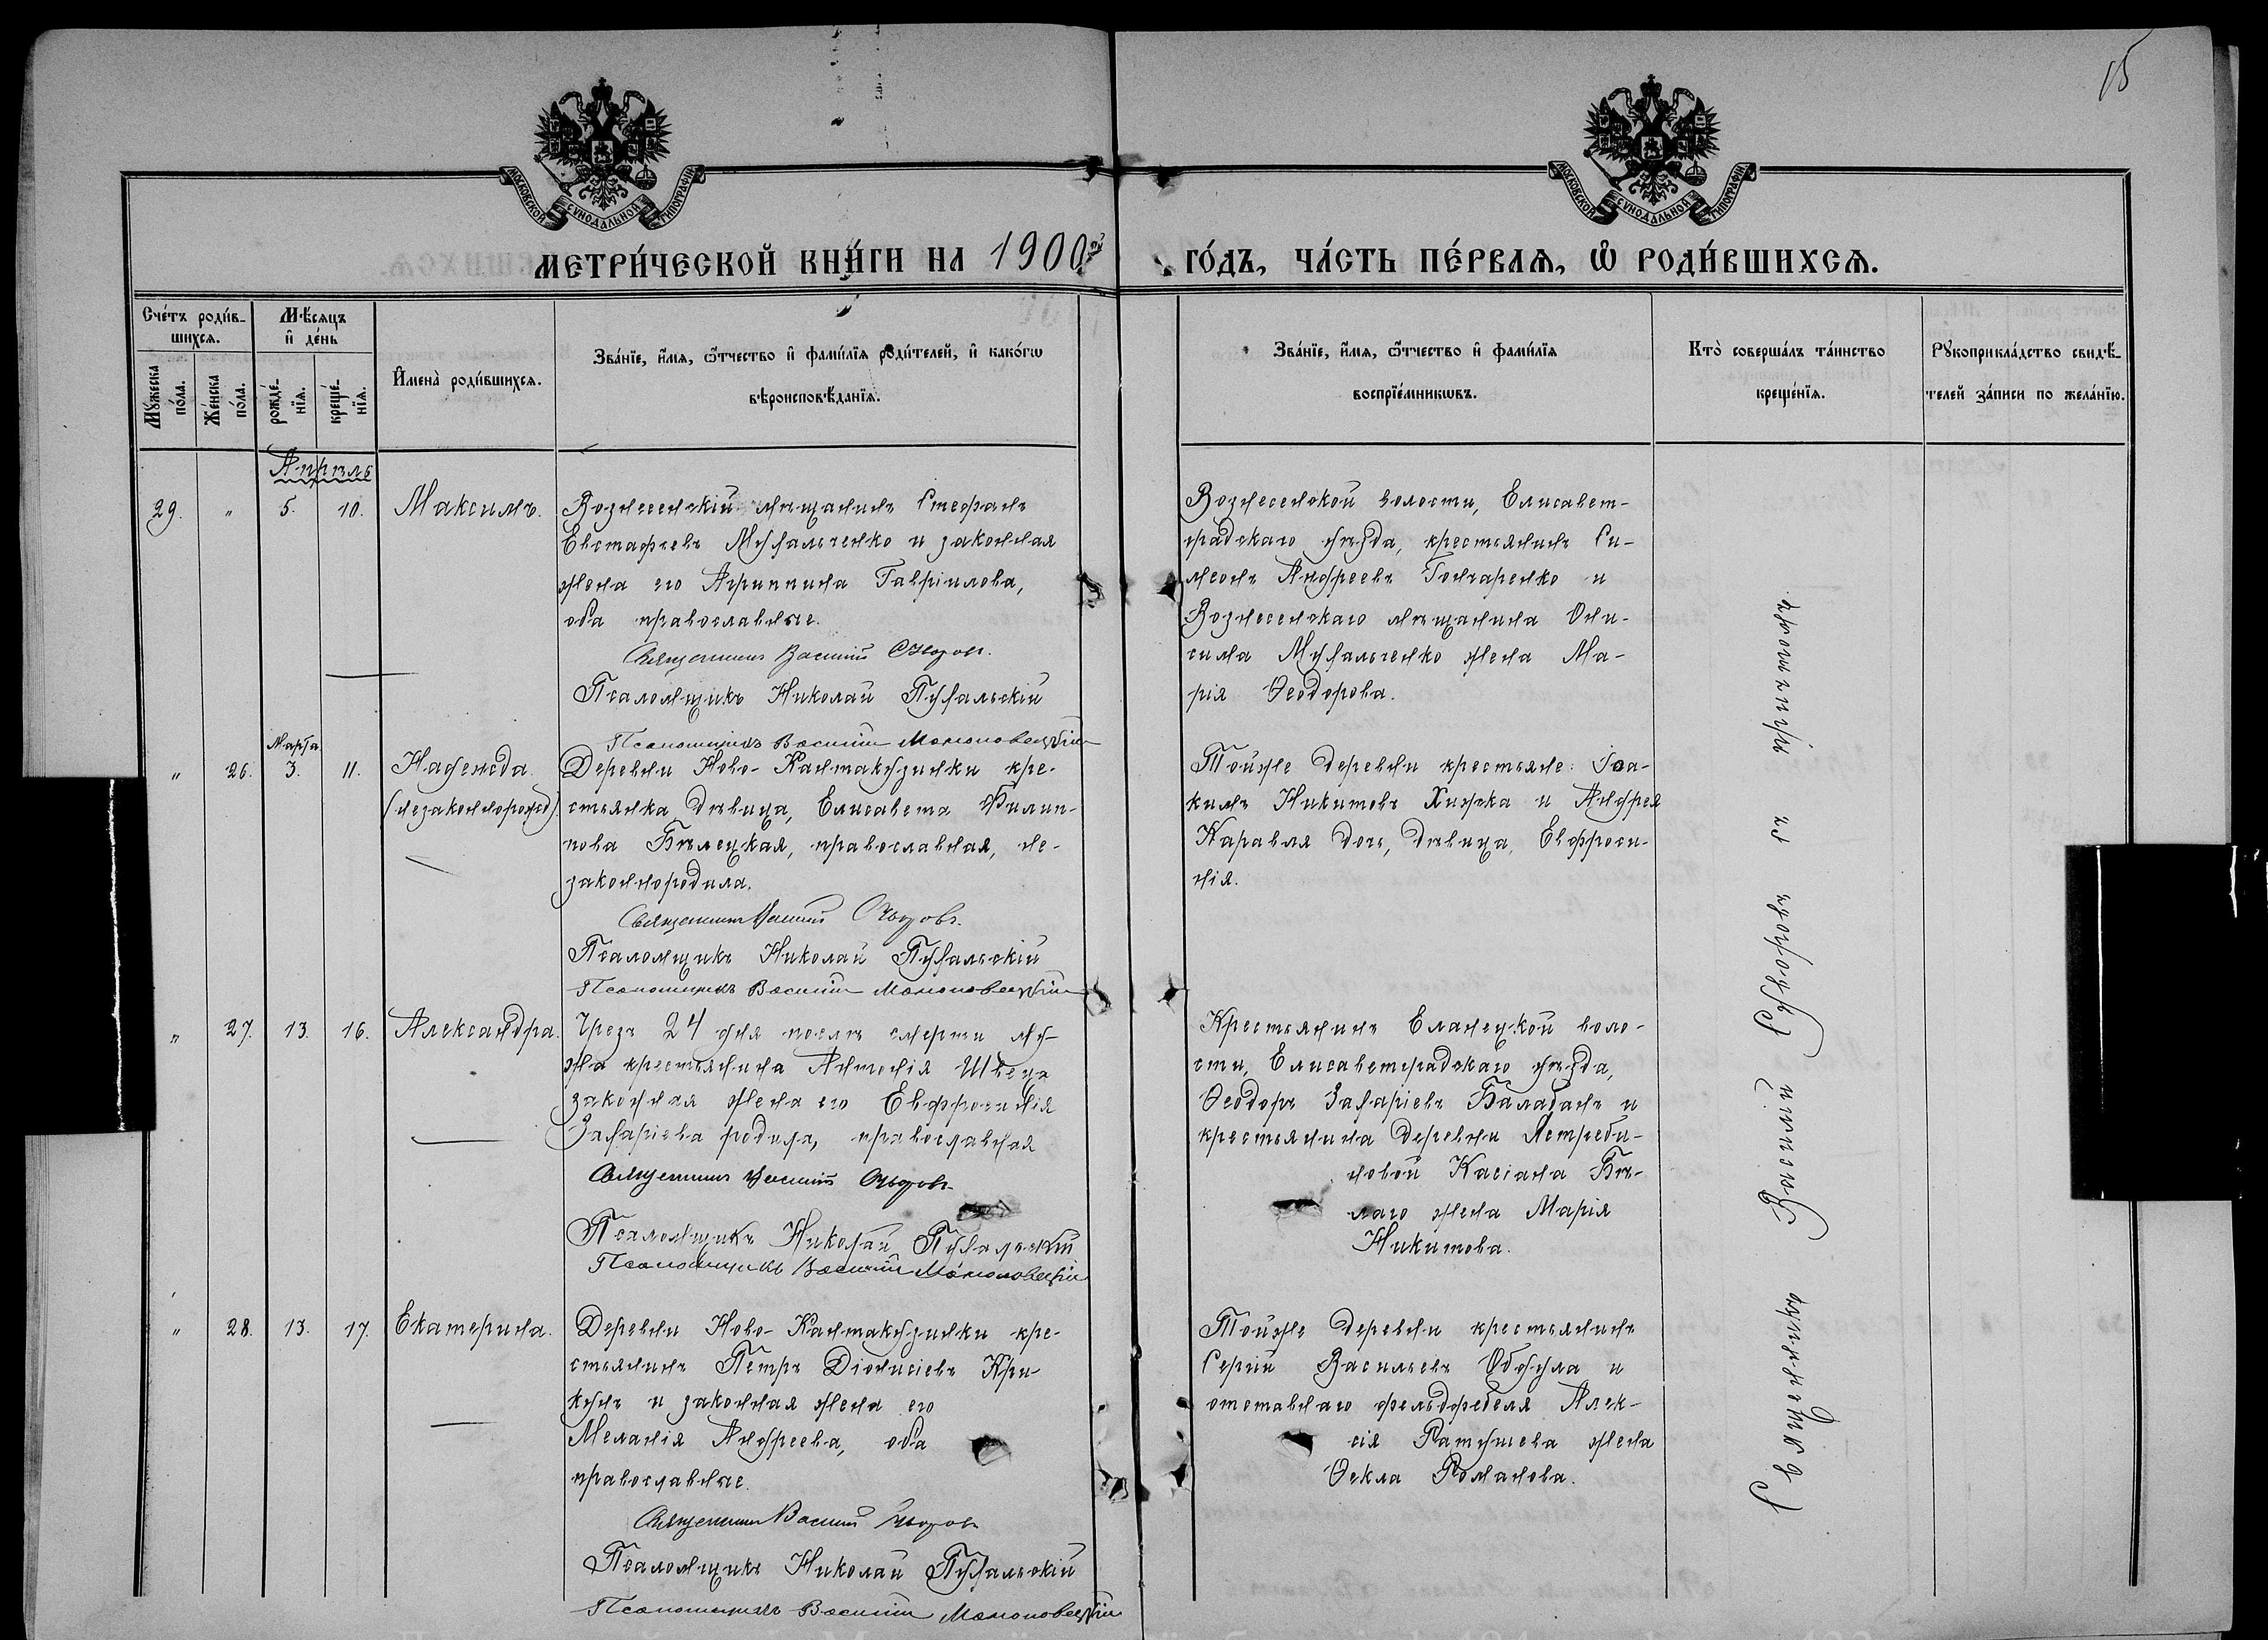 15
МОСКОВСКОЙ СУНОДАЛЬНОЙ ТИПОГРАФІИ
МОСКОВСКОЙ СУНОДАЛЬНОЙ ТИПОГРАФІИ
МЕТРИ́ЧЕСКОЙ КНИ́ГИ НА 1900й ГО́ДЪ, ЧА́СТЬ ПЕ́РВАѦ, Ѡ РОДИ́ВШИХСѦ.
Сче́тъ роди́в-
шихсѧ.
Му́жеска по́ла.
Же́нска по́ла.
Мѣ́сѧцъ
и҆ де́нь
рожде́-
нїѧ.
креще́-
нїѧ.
И҆мена̀ роди́вшихсѧ.
Зва́нїе, и҆́мѧ, ѻ҆́тчество и҆ фами́лїѧ роди́телей, и҆ како́гѡ
вѣроисповѣ́данїѧ.
Зва́нїе, и҆́мѧ, ѻ҆́тчество и҆ фами́лїѧ
воспрїе́мникѡвъ.
Кто̀ соверша́лъ та́инство
креще́нїѧ.
Рꙋкоприкла́дство свидѣ́-
телей за́писи по жела́нїю.
Апрѣль
29. " 5. 10. Максимъ.
Вознесенскій мѣщанинъ Стефанъ
Евстафіевъ Мухальченко и законная
жена его Агриппина Гавріилова,
оба православные.
Священникъ Василій
Псаломщикъ Николай Пухальскій
Псаломщикъ Василій
Вознесенской волости, Елисавет-
градскаго уѣзда, крестьянинъ Си-
меонъ Андреевъ Гончаренко и
Вознесенскаго мѣщанина Они-
сима Мухальченко жена Ма-
рія Ѳеодорова.
Марта
" 26. 3. 11. Надежда.
(незаконнорожд).
Деревни Ново-Кантакузинки кре-
стьянка дѣвица, Елисавета Филип-
пова Бѣлецкая, православная, не-
законнородила.
Священникъ Василій
Псаломщикъ Николай Пухальскій
Псаломщикъ Василій
Тойже деревни крестьяне: Іоа-
кимъ Никитовъ Хижка и Андрея
Каравля дочь, дѣвица, Евфроси-
нія.
" 27. 13. 16. Александра.
Чрезъ 24 дня послѣ смерти му-
жа крестьянина Антонія Швеца
законная жена его Евфросинія
Захаріева родила, православная
Священникъ Василій
Псаломщикъ Николай Пухальскій
Псаломщикъ Василій
Крестьянинъ Еланецкой воло-
сти, Елисаветградскаго уѣзда,
Ѳеодоръ Захаріевъ Балабанъ и
крестьянина деревни Ястреби-
новой Касіана Бѣ-
лаго жена Марія
Никитова.
" 28. 13. 17. Екатерина.
Деревни Ново-Кантакузинки кре-
стьянинъ Петръ Діонисіевъ Кри-
кунъ и законная жена его
Меланія Андреева, оба
православные.
Священникъ Василій
Псаломщикъ Николай Пухальскій
Псаломщикъ Василій
Тойже деревни крестьянинъ
Сергій Васильевъ Обухла и
отставнаго фельдфебеля Алек-
сія Ратушева жена
Ѳекла Романова.
Священникъ Василій съ